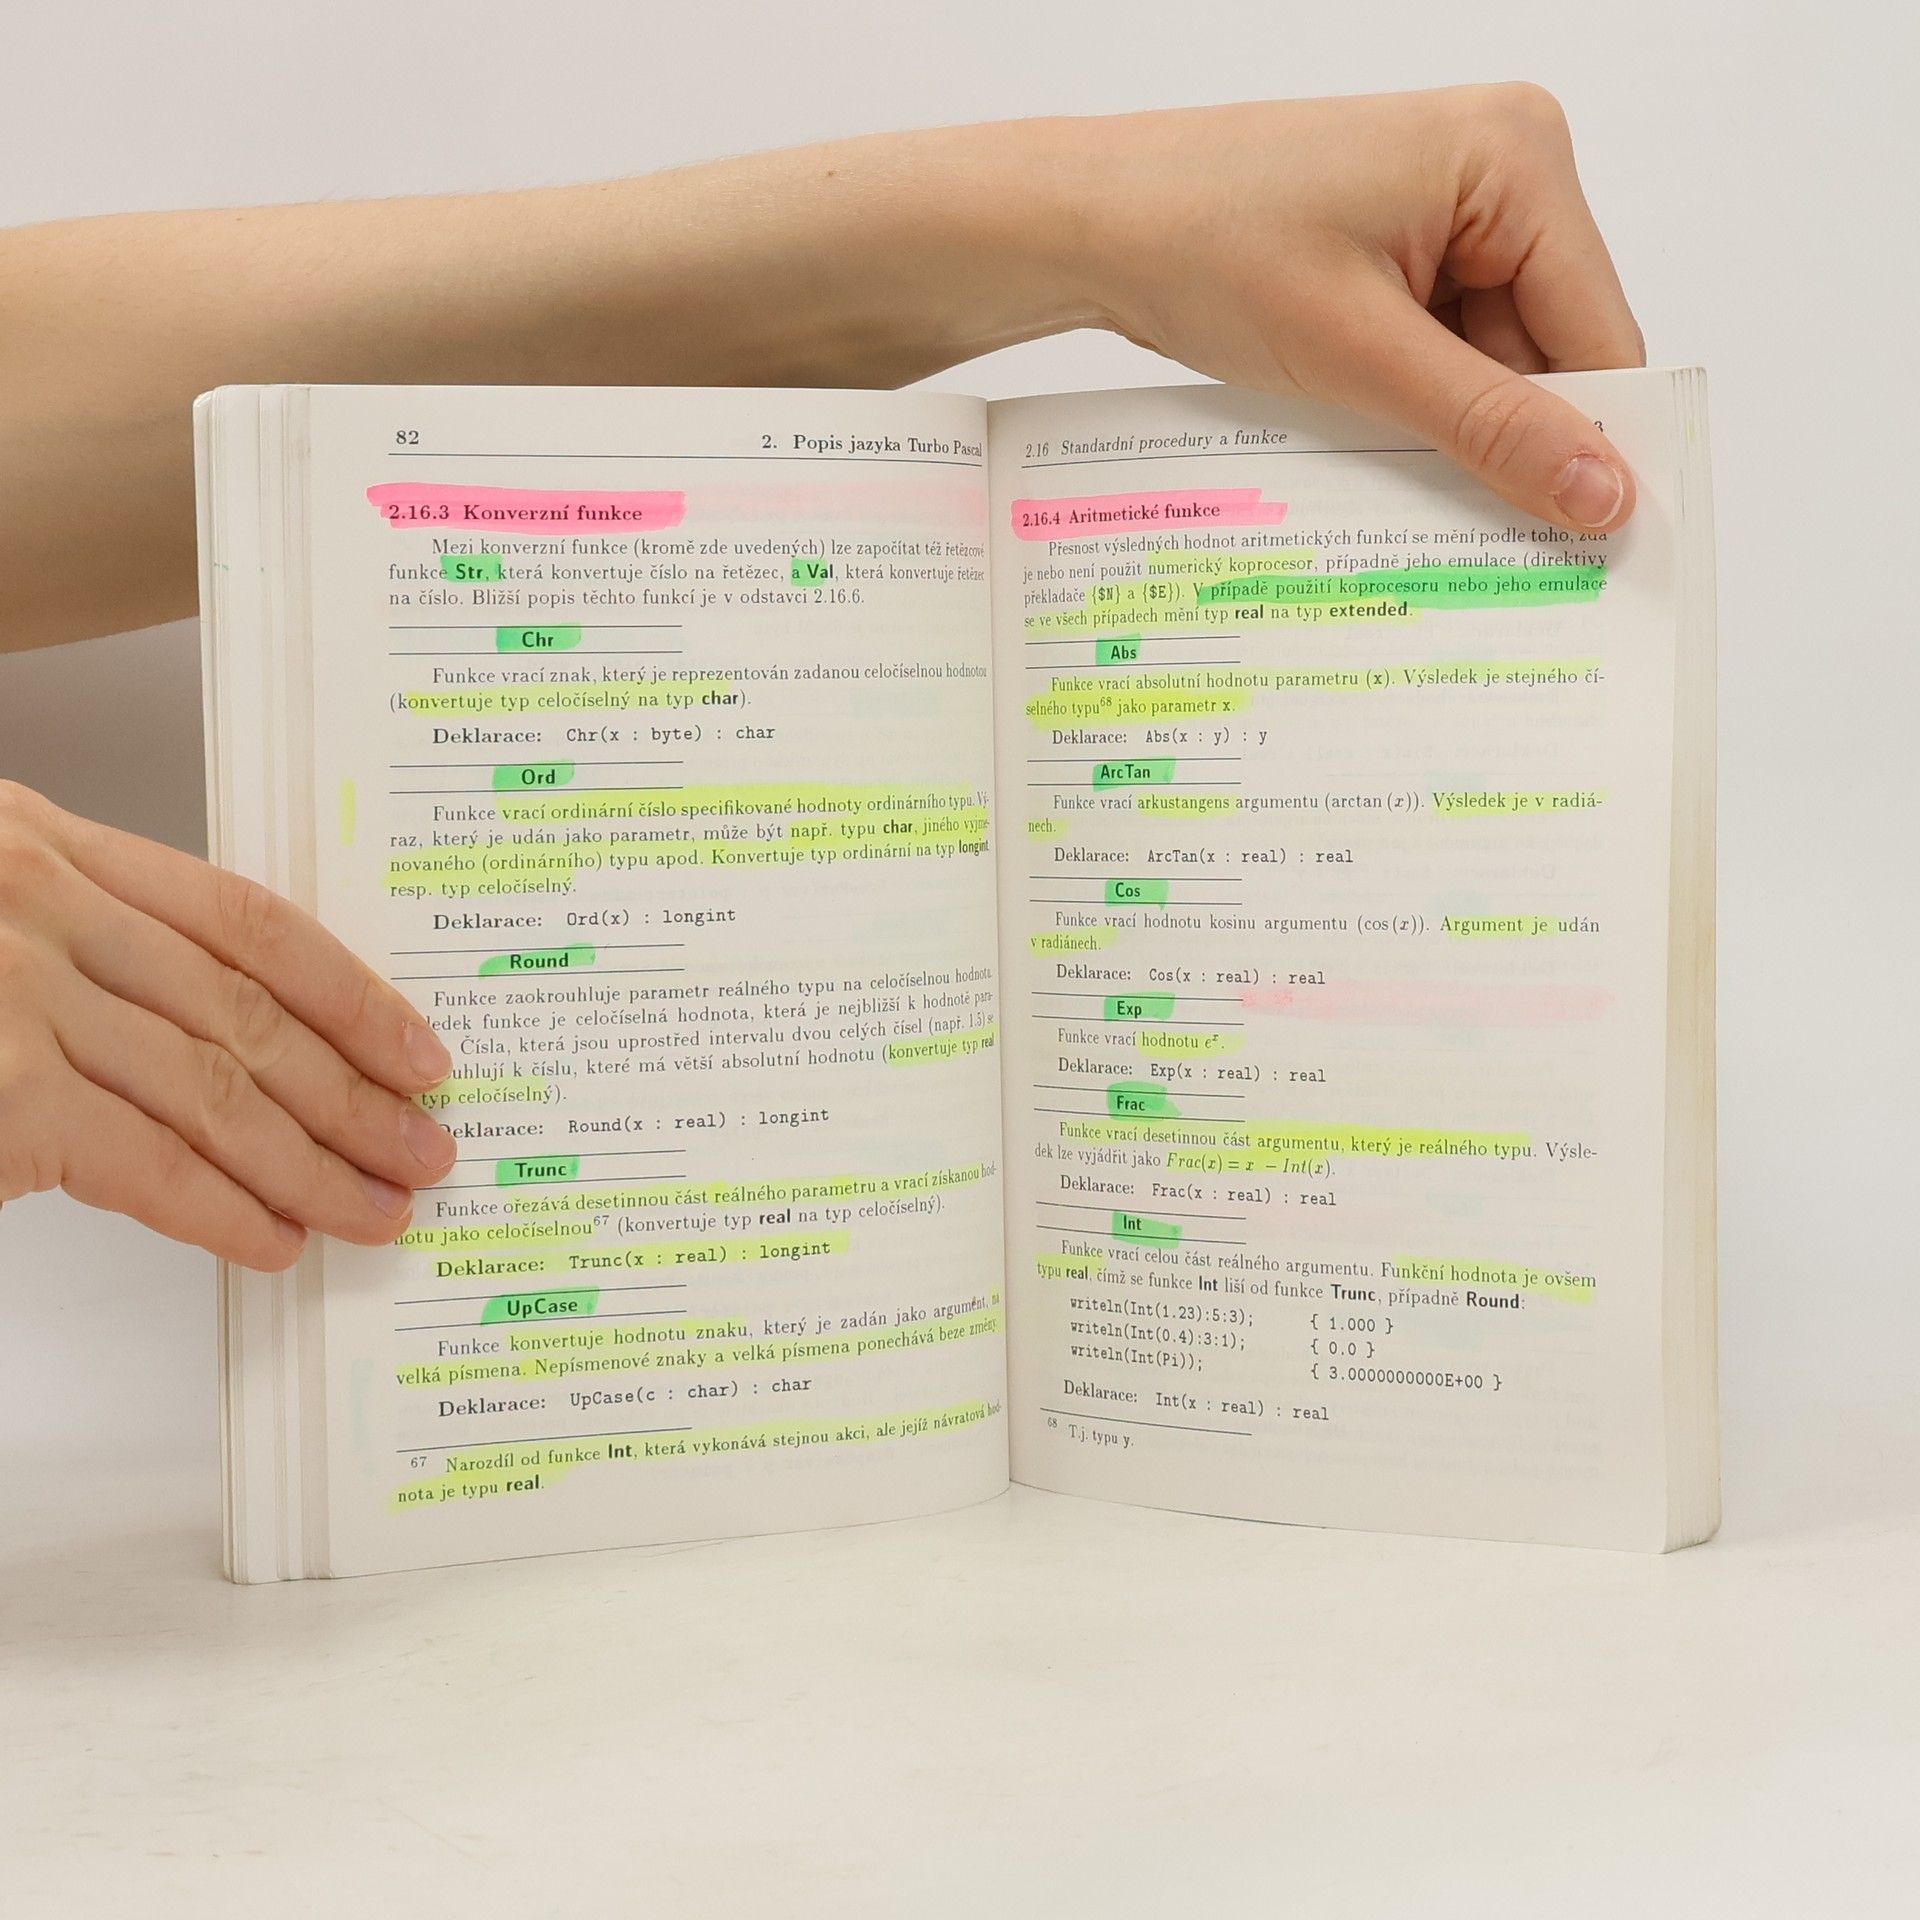 82 2. Popis jazyka Turbo Pascal
2.16.3 Konverzní funkce
Mezi konverzní funkce (kromě zde uvedených) lze započítat též řetězcové
funkce Str, která konvertuje číslo na řetězec, a Val, která konvertuje řetězec
na číslo. Bližší popis těchto funkcí je v odstavci 2.16.6.
Chr
Funkce vrací znak, který je reprezentován zadanou celočíselnou hodnotou
(konvertuje typ celočíselný na typ char).
Deklarace: Chr(x : byte) : char
Ord
Funkce vrací ordinární číslo specifikované hodnoty ordinárního typu. Vý-
raz, který je udán jako parametr, může být např. typu char, jiného vyjme-
novaného (ordinárního) typu apod. Konvertuje typ ordinární na typ longint
resp. typ celočíselný.
Deklarace: Ord(x) : longint
Round
Funkce zaokrouhluje parametr reálného typu na celočíselnou hodnotu.
ledek funkce je celočíselná hodnota, která je nejbližší k hodnotě para-
Čísla, která jsou uprostřed intervalu dvou celých čísel (např. 1.5) se
uhlují k číslu, které má větší absolutní hodnotu (konvertuje typ real
typ celočíselný).
Deklarace: Round(x : real) : longint
Trunc
Funkce ořezává desetinnou část reálného parametru a vrací získanou hod-
notu jako celočíselnou67 (konvertuje typ real na typ celočíselný).
Deklarace: Trunc(x : real) : longint
UpCase
Funkce konvertuje hodnotu znaku, který je zadán jako argument, na
velká písmena. Nepísmenové znaky a velká písmena ponechává beze změny.
Deklarace: UpCase(c : char) : char
67 Narozdíl od funkce Int, která vykonává stejnou akci, ale jejíž návratová hod-
nota je typu real.
2.16 Standardní procedury a funkce 3
2.16.4 Aritmetické funkce
Přesnost výsledných hodnot aritmetických funkcí se mění podle toho, zda
je nebo není použit numerický koprocesor, případně jeho emulace (direktivy
překladače {$N} a {$E}). V případě použití koprocesoru nebo jeho emulace
se ve všech případech mění typ real na typ extended.
Abs
Funkce vrací absolutní hodnotu parametru (x). Výsledek je stejného čí-
selného typu68 jako parametr x.
Deklarace: Abs(x : y) : y
ArcTan
Funkce vrací arkustangens argumentu (arctan (x)). Výsledek je v radiá-
nech.
Deklarace: ArcTan(x : real) : real
Cos
Funkce vrací hodnotu kosinu argumentu (cos (x)). Argument je udán
v radiánech.
Deklarace: Cos(x : real) : real
Exp
Funkce vrací hodnotu eˣ.
Deklarace: Exp(x : real) : real
Frac
Funkce vrací desetinnou část argumentu, který je reálného typu. Výsle-
dek lze vyjádřit jako Frac(x) = x − Int(x).
Deklarace: Frac(x : real) : real
Int
Funkce vrací celou část reálného argumentu. Funkční hodnota je ovšem
typu real, čímž se funkce Int liší od funkce Trunc, případně Round:
writeln(Int(1.23):5:3); { 1.000 }
writeln(Int(0.4):3:1); { 0.0 }
writeln(Int(Pi)); { 3.0000000000E+00 }
Deklarace: Int(x : real) : real
68 T.j. typu y.